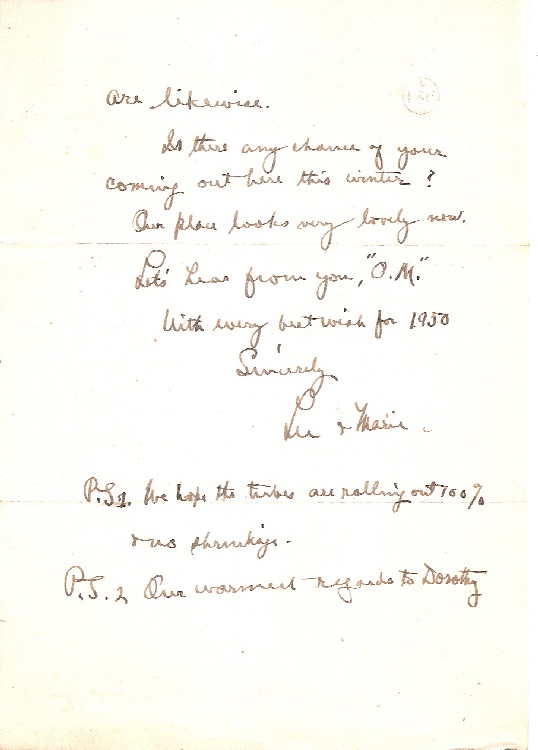 are likewise.
Is there any chance of your
coming out here this winter?
Our place looks very lovely now.
Let's hear from you, "O.M."
With every best wish for 1950
Sincerely
Lee & Marie.
P.S1. We hope the tubes are rolling out 100%
& no shrinkage.
P.S. 2 Our warmest regards to Dorothy